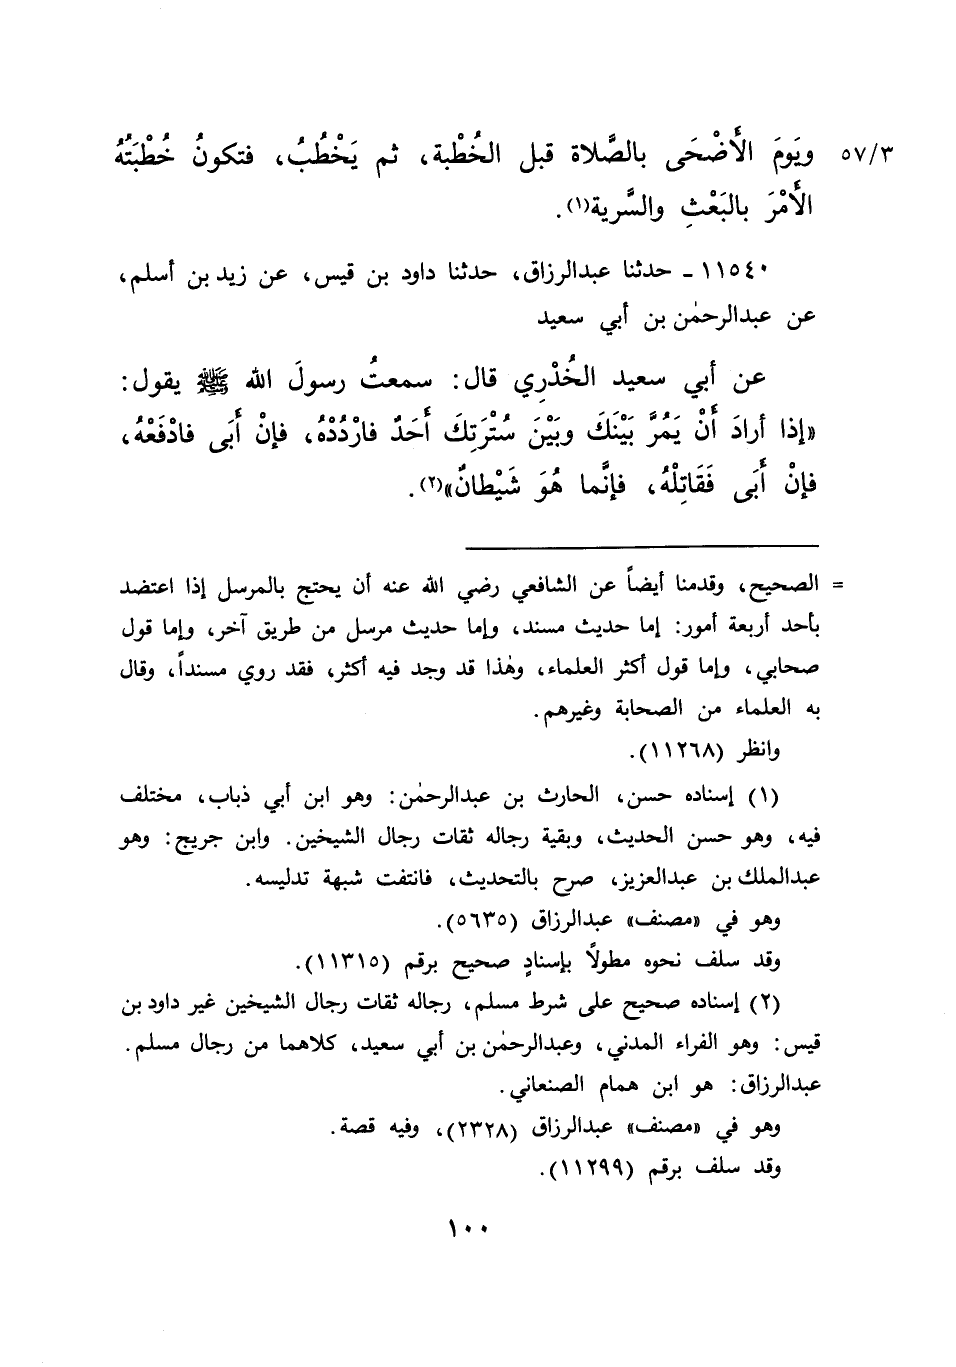 ٥٧/٣ ويَومَ الأَضْحَى بالصَّلاة قبل الخُطْبة، ثم يَخْطُبُ، فتكونُ خُطْبَتُهُ
الأَمْرَ بالبَعْثِ والسَّرية(١).
١١٥٤٠ ـ حدثنا عبدالرزاق، حدثنا داود بن قيس، عن زيد بن أسلم،
عن عبدالرحمٰن بن أبي سعيد
عن أبي سعيد الخُدْرِي قال: سمعتُ رسولَ الله ﷺ يقول:
«إذا أرادَ أَنْ يَمُرَّ بَيْنَكَ وبَيْنَ سُتْرَتِكَ أَحَدٌ فارْدُدْهُ، فإنْ أَبَى فادْفَعْهُ،
فإنْ أَبَى فَقَاتِلْهُ، فإنَّما هُوَ شَيْطانٌ»(٢).
= الصحيح، وقدمنا أيضاً عن الشافعي رضي الله عنه أن يحتج بالمرسل إذا اعتضد
بأحد أربعة أمور: إما حديث مسند، وإما حديث مرسل من طريق آخر، وإما قول
صحابي، وإما قول أكثر العلماء، وهٰذا قد وجد فيه أكثر، فقد روي مسنداً، وقال
به العلماء من الصحابة وغيرهم.
وانظر (١١٢٦٨).
(١) إسناده حسن، الحارث بن عبدالرحمٰن: وهو ابن أبي ذباب، مختلف
فيه، وهو حسن الحديث، وبقية رجاله ثقات رجال الشيخين. وابن جريج: وهو
عبدالملك بن عبدالعزيز، صرح بالتحديث، فانتفت شبهة تدليسه.
وهو في «مصنف» عبدالرزاق (٥٦٣٥).
وقد سلف نحوه مطولاً بإسنادٍ صحيح برقم (١١٣١٥).
(٢) إسناده صحيح على شرط مسلم، رجاله ثقات رجال الشيخين غير داود بن
قيس: وهو الفراء المدني، وعبدالرحمٰن بن أبي سعيد، كلاهما من رجال مسلم.
عبدالرزاق: هو ابن همام الصنعاني.
وهو في «مصنف» عبدالرزاق (٢٣٢٨)، وفيه قصة.
وقد سلف برقم (١١٢٩٩).
١٠٠